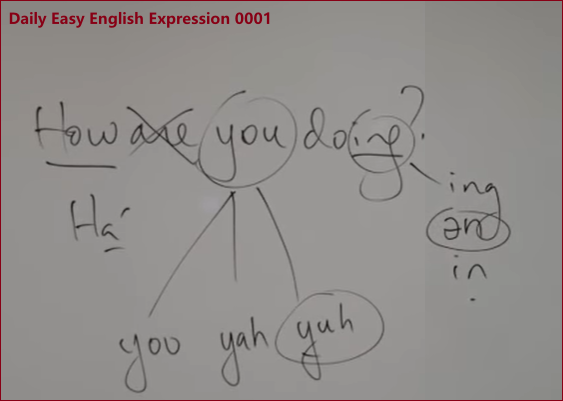 Daily Easy English Expression 0001
How are you doing?
ing
Ha
ən
in
yoo yah yuh